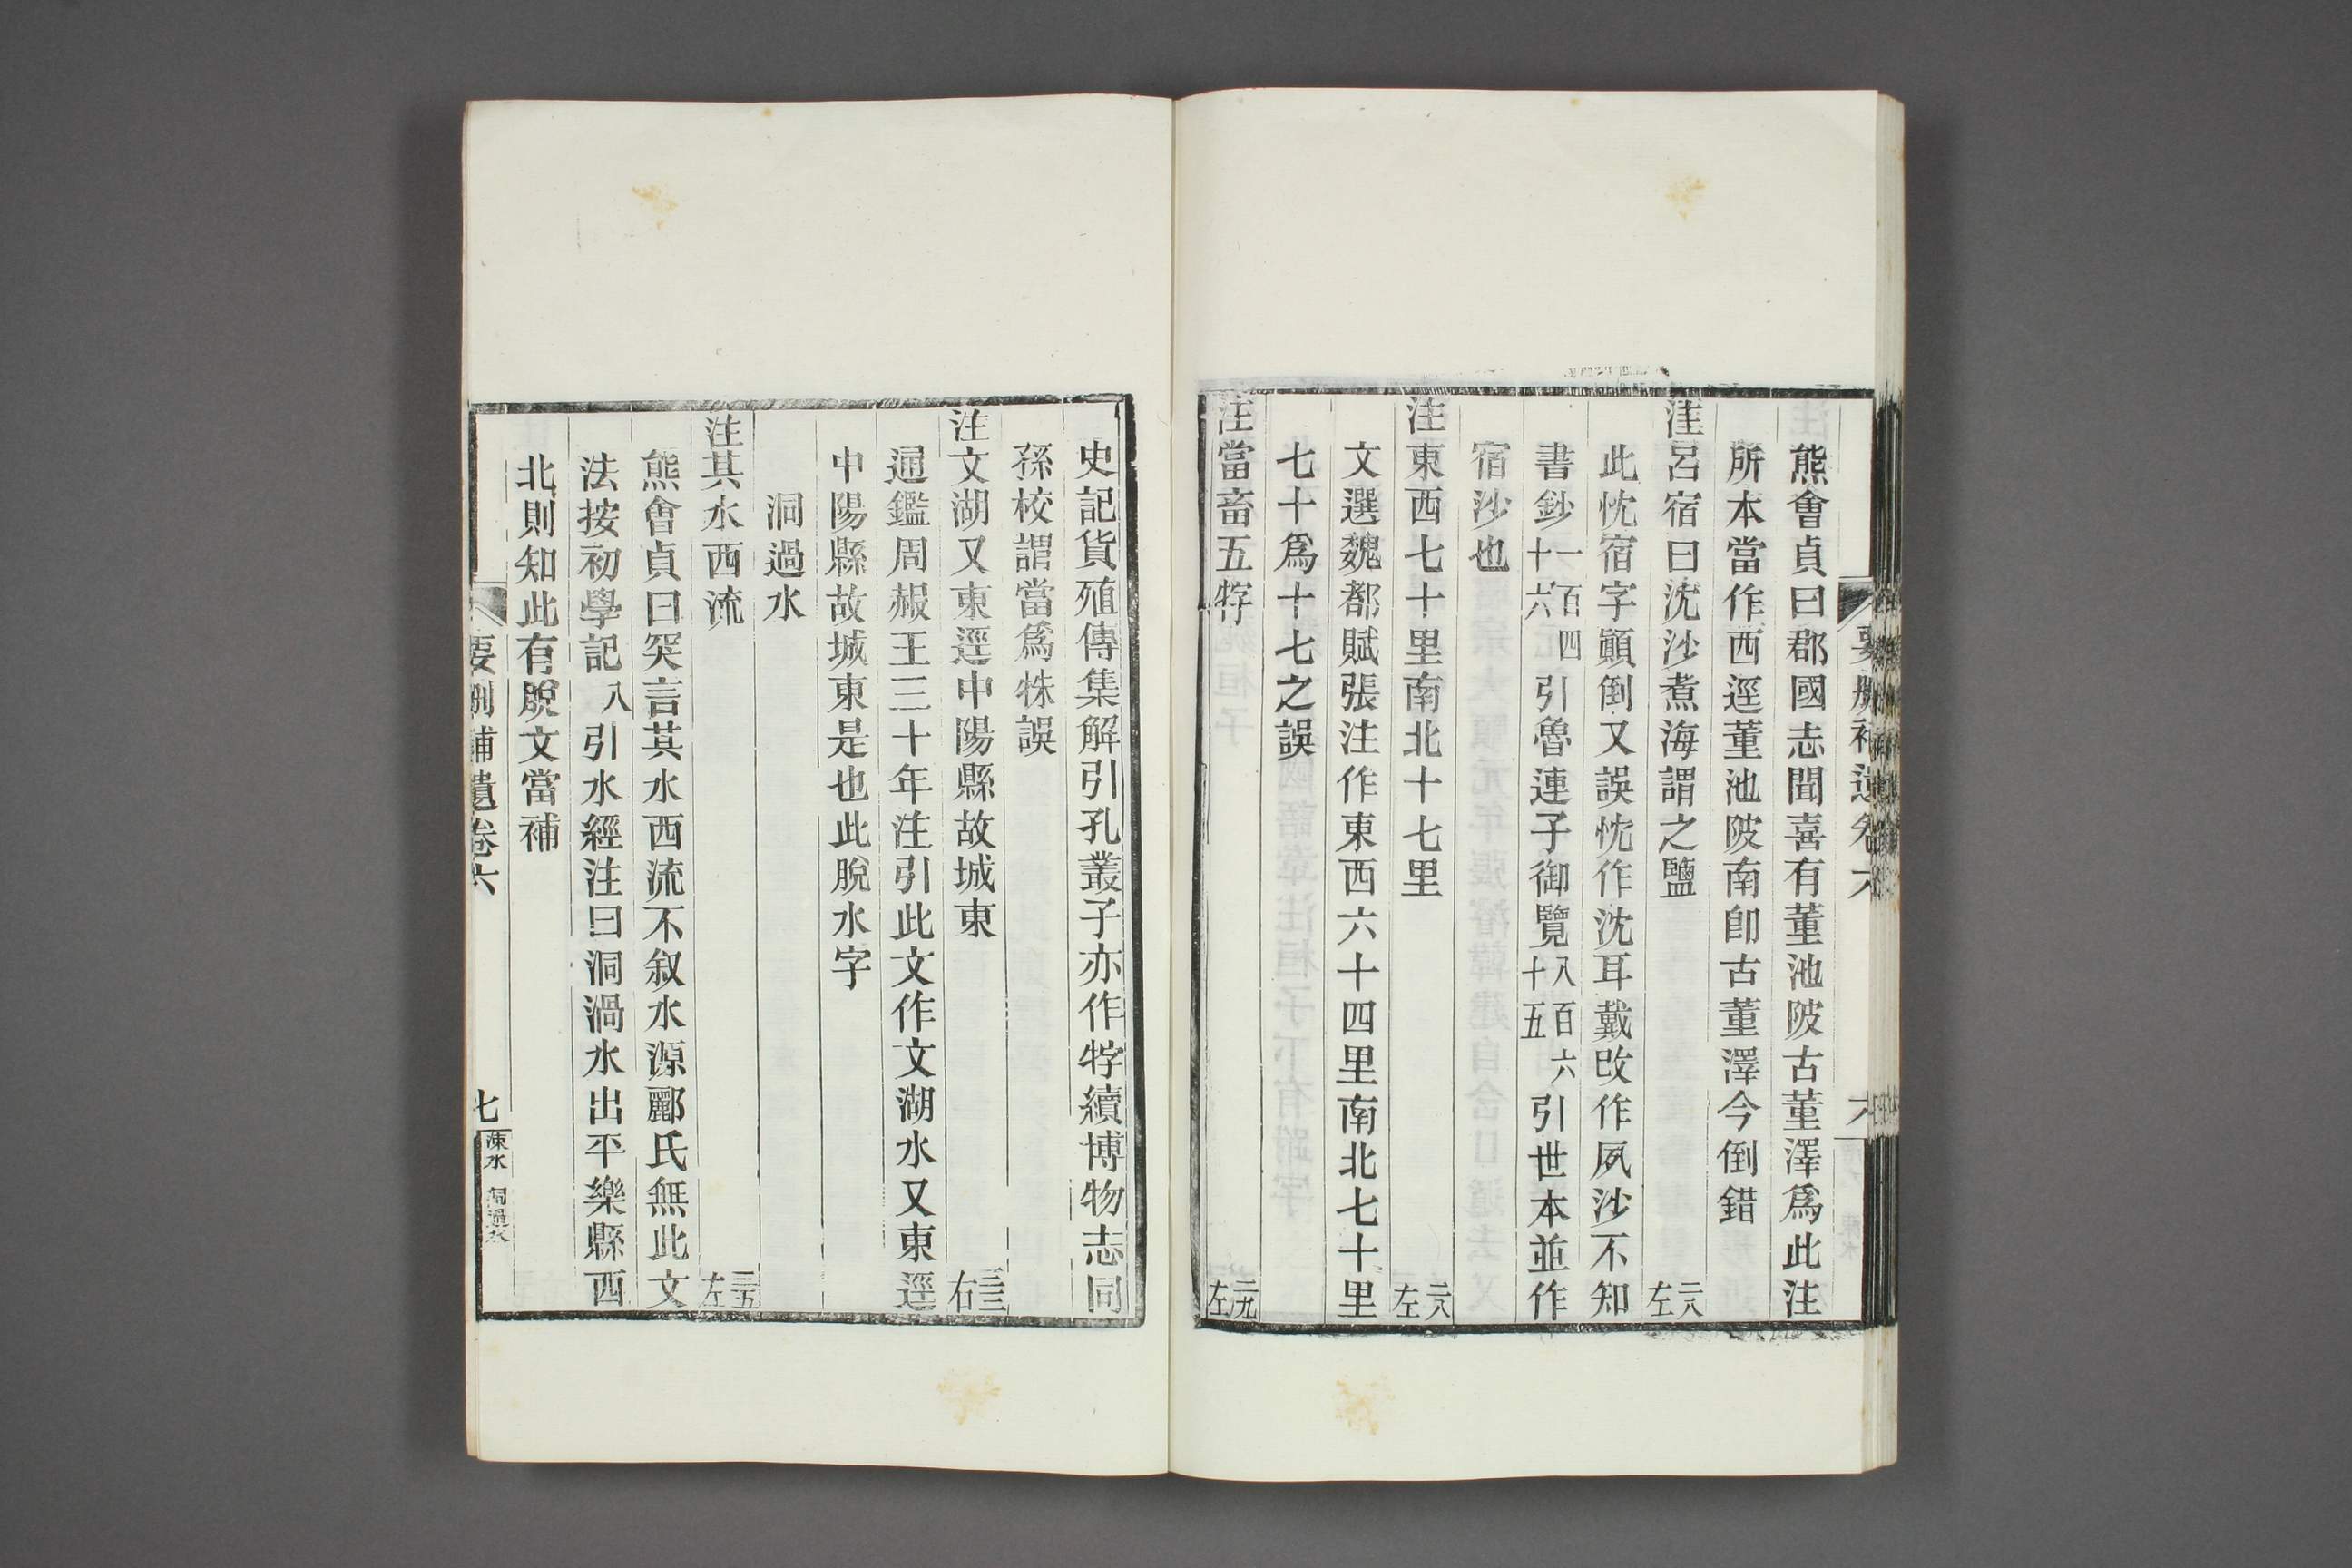 熊會貞曰郡國志聞喜有董池陂古董澤爲此注
所本當作西逕董池陂南卽古董澤今倒錯
注呂宿曰沈沙煮海謂之鹽 二八左
此忱宿字顚倒又誤忱作沈耳戴改作夙沙不知
書鈔一百四十六引魯連子御覽八百六十五引世本並作
宿沙也
注東西七十里南北十七里 二八左
文選魏都賦張注作東西六十四里南北七十里
七十爲十七之誤
注當畜五牸 二九左
史記貨殖傳集解引孔叢子亦作牸續博物志同
孫校謂當爲㹀誤
注文湖又東逕中陽縣故城東 三三右
通鑑周赧王三十年注引此文作文湖水又東逕
中陽縣故城東是也此脫水字
洞過水
注其水西流 三五左
熊會貞曰突言其水西流不叙水源酈氏無此文
法按初學記八引水經注曰洞渦水出平樂縣西
北則知此有脫文當補
要刪補遺卷六
七 涑水 洞過水